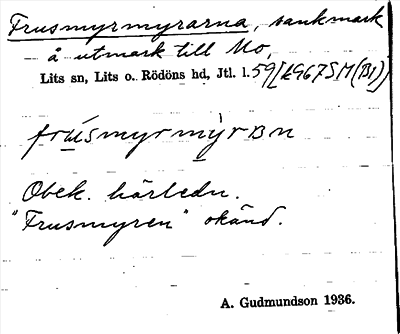 Frusmyrmyrarna, sankmark
å utmark till Mo,
Lits sn, Lits o. Rödöns hd, Jtl. l. 59
frùsmyrmỳrвn
Obek. härledn.
"Frusmyren" okänd.
A. Gudmundson 1936.